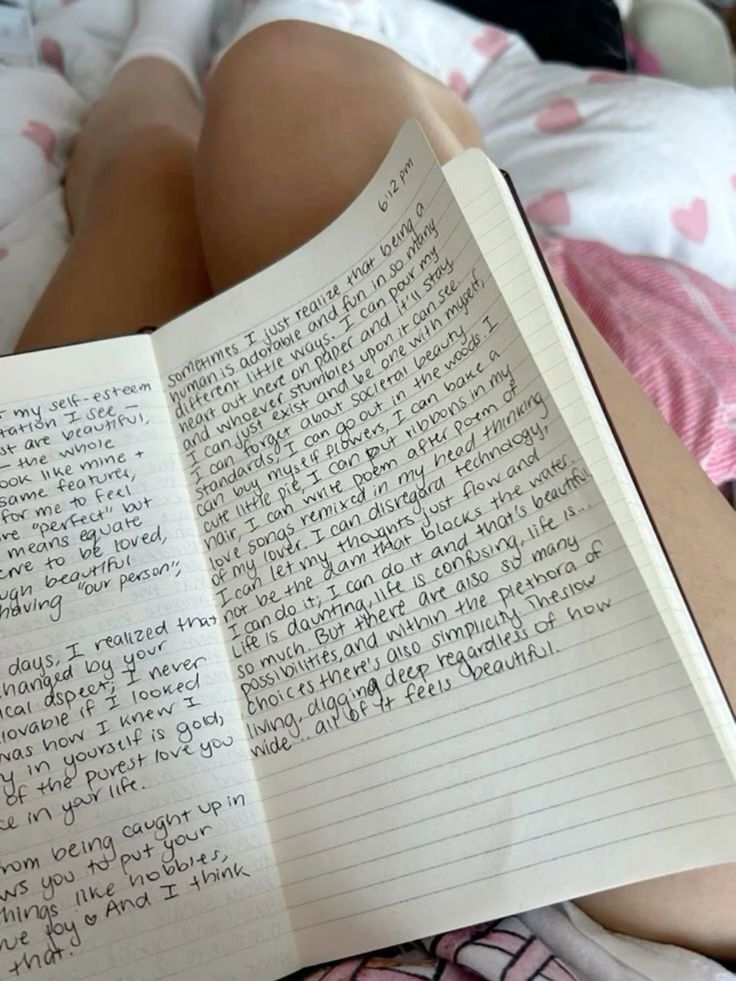 f my self-esteem
tation I see –
st are beautiful,
– the whole
ook like mine +
same features,
for me to feel
re "perfect" but
means equate
erve to be loved,
ugh beautiful
having "our person";
days, I realized that
changed by your
ical aspect; I never
lovable if I looked
was how I knew I
y in yourself is gold,
of the purest love you
ce in your life.
rom being caught up in
ws you to put your
things like hobbies,
ve joy ♡ And I think
that.
6:12 pm
sometimes I just realize that being a
human is adorable and fun in so many
different little ways. I can pour my
heart out here on paper and it'll stay
and whoever stumbles upon it can see.
I can just exist and be one with myself,
I can forget about societal beauty
standards, I can go out in the woods I
can buy myself flowers, I can bake a
cute little pie, I can put ribbons in my
hair, I can write poem after poem of
love songs remixed in my head thinking
of my lover. I can disregard technology,
I can let my thoughts just flow and
not be the dam that blocks the water.
I can do it; I can do it and that's beautiful
Life is daunting, life is confusing, life is...
so much. But there are also so many
possibilities, and within the plethora of
choices there's also simplicity. The slow
living, digging deep regardless of how
wide... all of it feels beautiful.